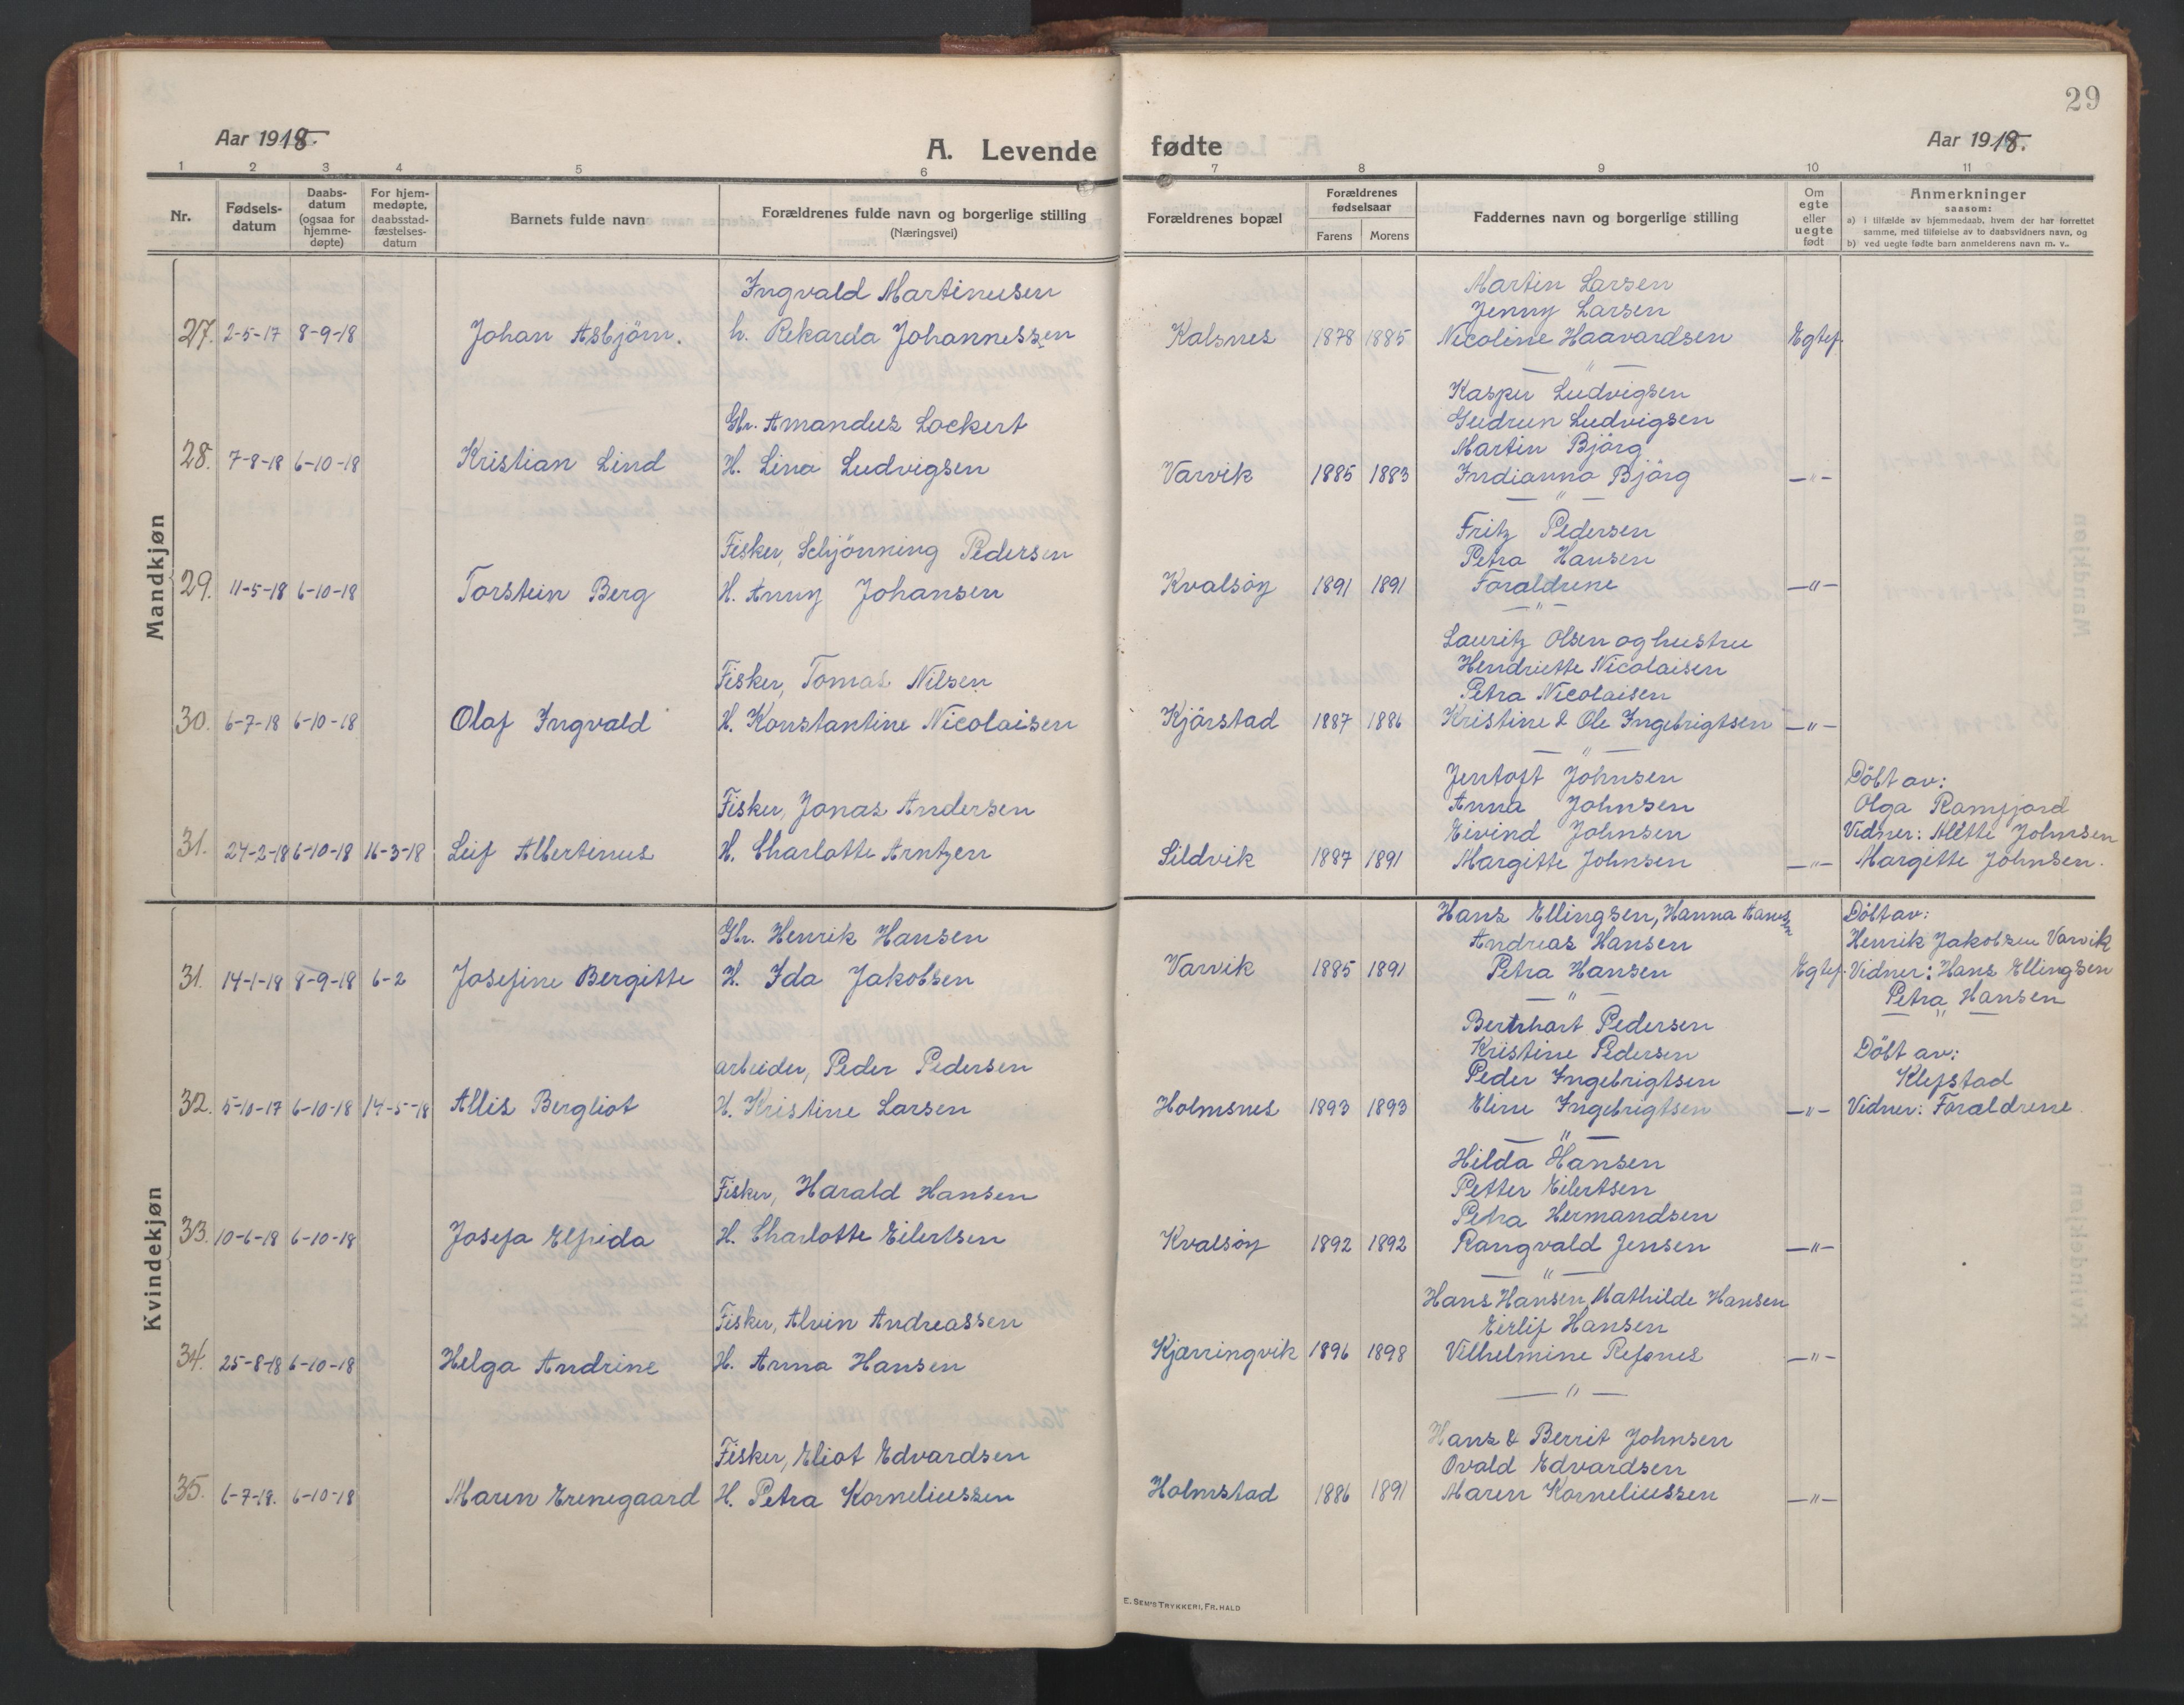 29
Aar 1918.
A. Levende fødte
Aar 1918.
1 2 3 4 5 6 7 8 9 10 11
Nr.
Fødsels-
datum
Daabs-
datum
(ogsaa for
hjemme-
døpte)
For hjem-
medøpte,
daabsstad-
fæstelses-
datum
Barnets fulde navn
Forældrenes fulde navn og borgerlige stilling
(Næringsvei)
Forældrenes bopæl
Forældrenes
fødselsaar
Farens Morens
Faddernes navn og borgerlige stilling
Om
egte
eller
uegte
født
Anmerkninger
saasom:
a) i tilfælde av hjemmedaab, hvem der har forrettet
samme, med tilføielse av to daabsvidners navn, og
b) ved uegte fødte barn anmelderens navn m. v..
Mandkjøn
Ingvald Martinusen Martin Larsen
Jenny Larsen
27. 2-5-17 8-9-18 Johan Asbjörn. h. Rekarda Johannessen Kalsnes 1878 1885 Nicoline Haavardsen Egtef.
— " —
Kasper Ludvigsen
Gbr. Amandus Lockert Gudrun Ludvigsen
Martin Bjørg
28. 7-8-18 6-10-18 Kristian Lind H. Lina Ludvigsen Varvik 1885 1883 Indianna Bjørg —"—
— " —
Fritz Pedersen
Fisker, Schjönning Pedersen Petra Hansen
29. 11-5-18 6-10-18 Torstein Berg H. Anny Johansen Kvalsöy 1891 1891 Foraldrene —"—
— " —
Lauritz Olsen og hustru
Hendriette Nicolaisen
Fisker, Tomas Nilsen Petra Nicolaisen
30. 6-7-18 6-10-18 Olaf Ingvald H. Konstantine Nicolaisen Kjörstad 1887 1886 Kristine & Ole Ingebrigtsen —"—
— " —
Jentoft Johnsen Döbt av:
Fisker, Jonas Andersen Anna Johnsen Olga Ramfjord
Eivind Johnsen Vidner: Mette Johnsen
31. 24-2-18 6-10-18 16-3-18 Leif Albertinus H. Charlotte Arntzen Sildvik 1887 1891 Margitte Johnsen —"— Margitte Johnsen.
Kvindekjøn
Hans Ellingsen, Hanna Hansen Döbt av:
Gbr. Henrik Hansen Andreas Hansen Henrik Jakobsen Varvik
31. 14-1-18 8-9-18 6-2 Josefine Bergitte H. Ida Jakobsen Varvik 1885 1891 Petra Hansen Egtef. Vidner: Hans Ellingsen
— " — Petra Hansen
— " —
Bernhart Pedersen
Kristine Pedersen Döbt av:
arbeider, Peder Pedersen Peder Ingebrigtsen Klefstad
32. 5-10-17 6-10-18 14-5-18 Allis Bergliot H. Kristine Larsen Holmsnes 1893 1893 Eline Ingebrigtsen —"— Vidner: Foraldrene
— " —
Hilda Hansen
Fisker, Harald Hansen Petter Eilertsen
Petra Hermandsen
33. 10-6-18 6-10-18 Josefa Elfrida H. Charlotte Eilertsen Kvalsöy 1892 1892 Rangvald Jensen —"—
— " —
Hans Hansen, Mathilde Hansen
Fisker, Alvin Andreassen Eirlif Hansen
34. 25-8-18 6-10-18 Helga Andrine H. Anna Hansen Kjærringvik 1896 1898 Vilhelmine Refsnes —"—
— " —
Hans & Berrit Johnsen
Fisker, Eliot Edvardsen Ovald Edvardsen
35. 6-7-18. 6-10-18 Maren Erenegaard H. Petra Korneliussen Holmstad 1886 1891 Maren Korneliussen —"—
E. SEM'S TRYKKERI, FR. HALD